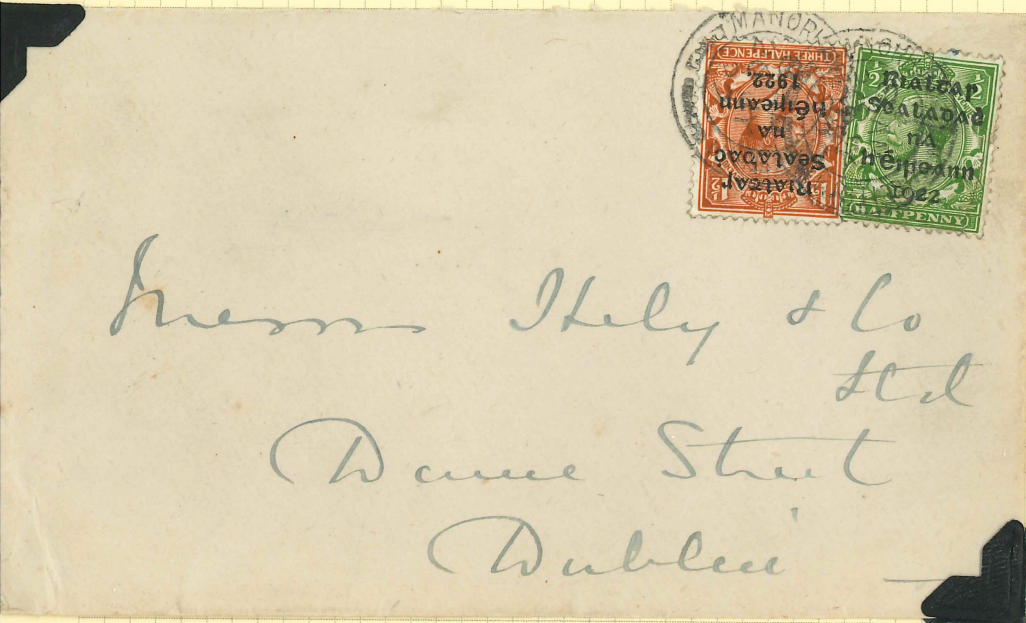 THREE HALFPENCE
Rialtar
Sealadaċ
na
hÉireann
1922.
Rialtar
Sealadaċ
na
hÉireann
1922
HALFPENNY
Messrs Hely & Co
Ltd
Dame Street
Dublin